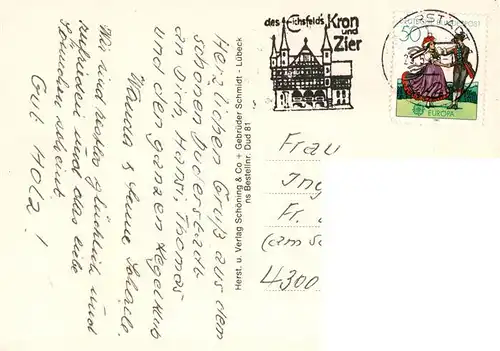 des Eichsfelds Kron
und
Zier
DEUTSCHE BUNDESPOST
50
EUROPA
Herzlichen Gruß aus dem
schönen Duderstadt
an Dich, Hans, Thomas
und den ganzen Kegelklub
Wanda &
Wir sind restlos glücklich und
zufrieden und das liebe
Gut Holz!
Herst. u. Verlag Schöning & Co + Gebrüder Schmidt · Lübeck
ns Bestellnr. Dud 81
Frau
Ing
Fr.
(am
4300